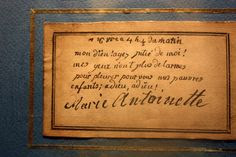 ce 16 8bre a 4 h ½ du matin
mon dieu ayez pitié de moi !
mes yeux n'ont plus de larmes
pour pleurer pour vous mes pauvres
enfants ; adieu, adieu !
Marie Antoinette